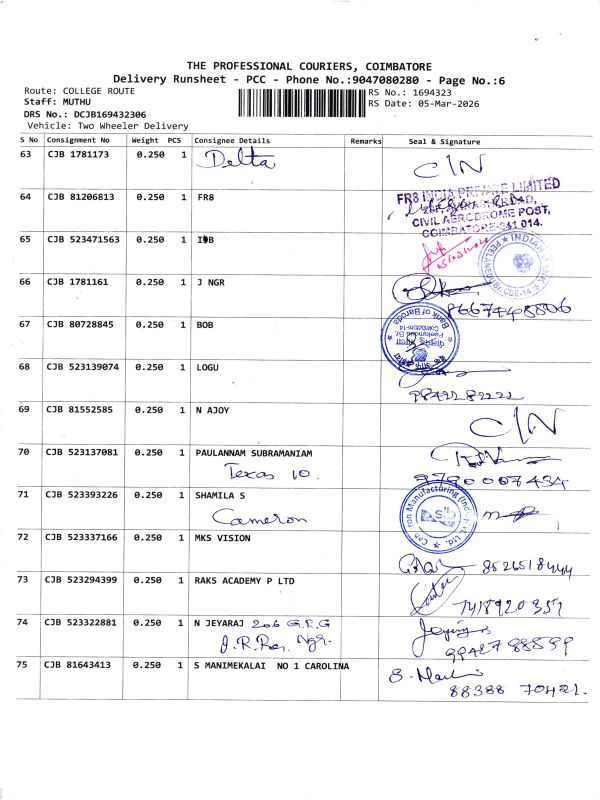 THE PROFESSIONAL COURIERS, COIMBATORE
Delivery Runsheet - PCC - Phone No.:9047080280 - Page No.:6
Route: COLLEGE ROUTE
RS No.: 1694323
Staff: MUTHU
RS Date: 05-Mar-2026
DRS No.: DCJB169432306
Vehicle: Two Wheeler Delivery
S No Consignment No Weight PCS Consignee Details Remarks Seal & Signature
63 CJB 1781173 0.250 1 Delta C/N
64 CJB 81206813 0.250 1 FR8
FR8 INDIA PRIVATE LIMITED
CIVIL AERODROME POST,
COIMBATORE-641 014.
65 CJB 523471563 0.250 1 IOB
66 CJB 1781161 0.250 1 J NGR
8667448806
67 CJB 80728845 0.250 1 BOB
Bank of Baroda
Peelamedu Br.
Coimbatore-14
68 CJB 523139074 0.250 1 LOGU
9842282222
69 CJB 81552585 0.250 1 N AJOY C/N
70 CJB 523137081 0.250 1 PAULANNAM SUBRAMANIAM
Texas 10.
9790007434
71 CJB 523393226 0.250 1 SHAMILA S
Cameron
72 CJB 523337166 0.250 1 MKS VISION
8526518444
73 CJB 523294399 0.250 1 RAKS ACADEMY P LTD
7418920357
74 CJB 523322881 0.250 1 N JEYARAJ 206 G.R.G
Ngr.
99427 88899
75 CJB 81643413 0.250 1 S MANIMEKALAI NO 1 CAROLINA
88388 70421.